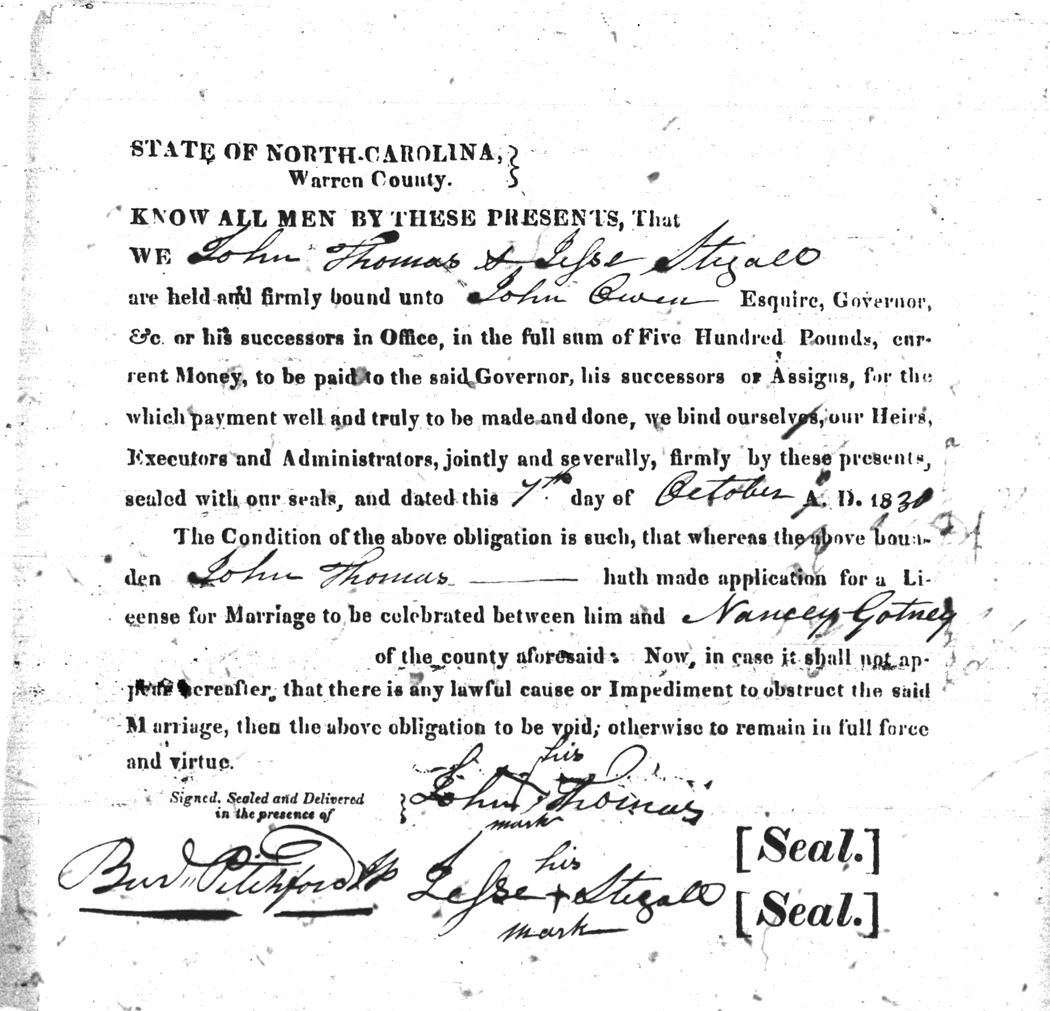 STATE OF NORTH-CAROLINA,
Warren County.
KNOW ALL MEN BY THESE PRESENTS, That
WE John Thomas & Jesse Stegall
are held and firmly bound unto John Owen Esquire, Governor,
&c. or his successors in Office, in the full sum of Five Hundred Pounds, cur-
rent Money, to be paid to the said Governor, his successors or Assigns, for the
which payment well and truly to be made and done, we bind ourselves, our Heirs,
Executors and Administrators, jointly and severally, firmly by these presents,
sealed with our seals, and dated this 7th day of October A. D. 1830
The Condition of the above obligation is such, that whereas the above boun-
den John Thomas hath made application for a Li-
cense for Marriage to be celebrated between him and Nancey Gotney
of the county aforesaid: Now, in case it shall not ap-
pear hereafter, that there is any lawful cause or Impediment to obstruct the said
Marriage, then the above obligation to be void; otherwise to remain in full force
and virtue.
his
Signed, Sealed and Delivered John + Thomas
in the presence of mark
[Seal.]
his
Pitchford Jesse + Stegall
[Seal.]
mark